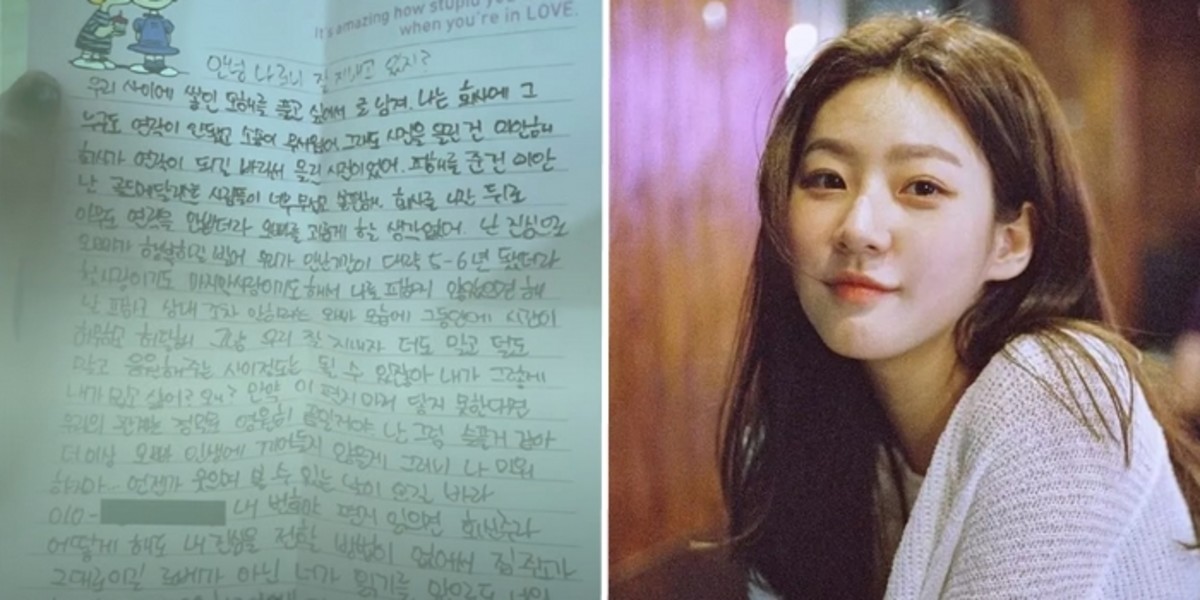 It's amazing how stupid you
when you're in LOVE.
안녕 나 잘 지내고 있지?
우리 사이에 쌓인 오해를 풀고 싶어서 글 남겨. 나는 회사에 그
누구도 연락이 안됐고 소송이 무서웠어. 그래도 사진을 올린 건 미안해
회사가 연락이 되길 바래서 올린 사진이었어. 피해를 준 건 미안
난 골드메달리스트 사람들이 너무 무섭고 회사를 나간 뒤로
아무도 연락을 안받더라 오빠를 괴롭게 할 생각 없어. 난 진심으로
오빠가 행복하길 빌어 우리가 만난기간이 대략 5-6년 됐더라
첫사랑이기도 마지막사랑이기도 해서 나를 피하지 않았으면 해
난 피하고 상대 조차 안하려는 오빠 모습에 그동안에 시간이
허무하고 허탈해. 그냥 우리 잘 지내자 더도 말고 덜도
말고 응원해주는 사이정도는 될 수 있잖아 내가 그렇게
내가 밉고 싫어? 왜? 만약 이 편지 마저 닿지 못한다면
우리의 관계는 정말로 영원히 끝일거야 난 그럼 슬플거 같아
더이상 오빠 인생에 끼어들지 않을게 그러니 나 미워
하지마. 언젠가 웃으며 볼 수 있는 날이 오길 바라
010- 내 번호야 편지 읽으면 회신주라
어떻게 해도 내 진심을 전할 방법이 없어서 집 주소가
그대로이길 아닌 너가 읽기를